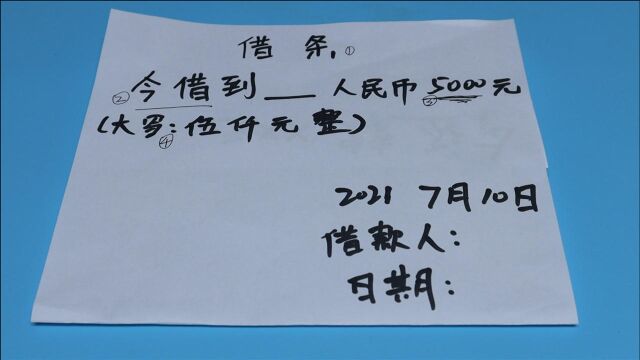 借条①
②今借到___人民币5000元③
(大写:伍仟元整)④
2021 7月10日
借款人:
日期: